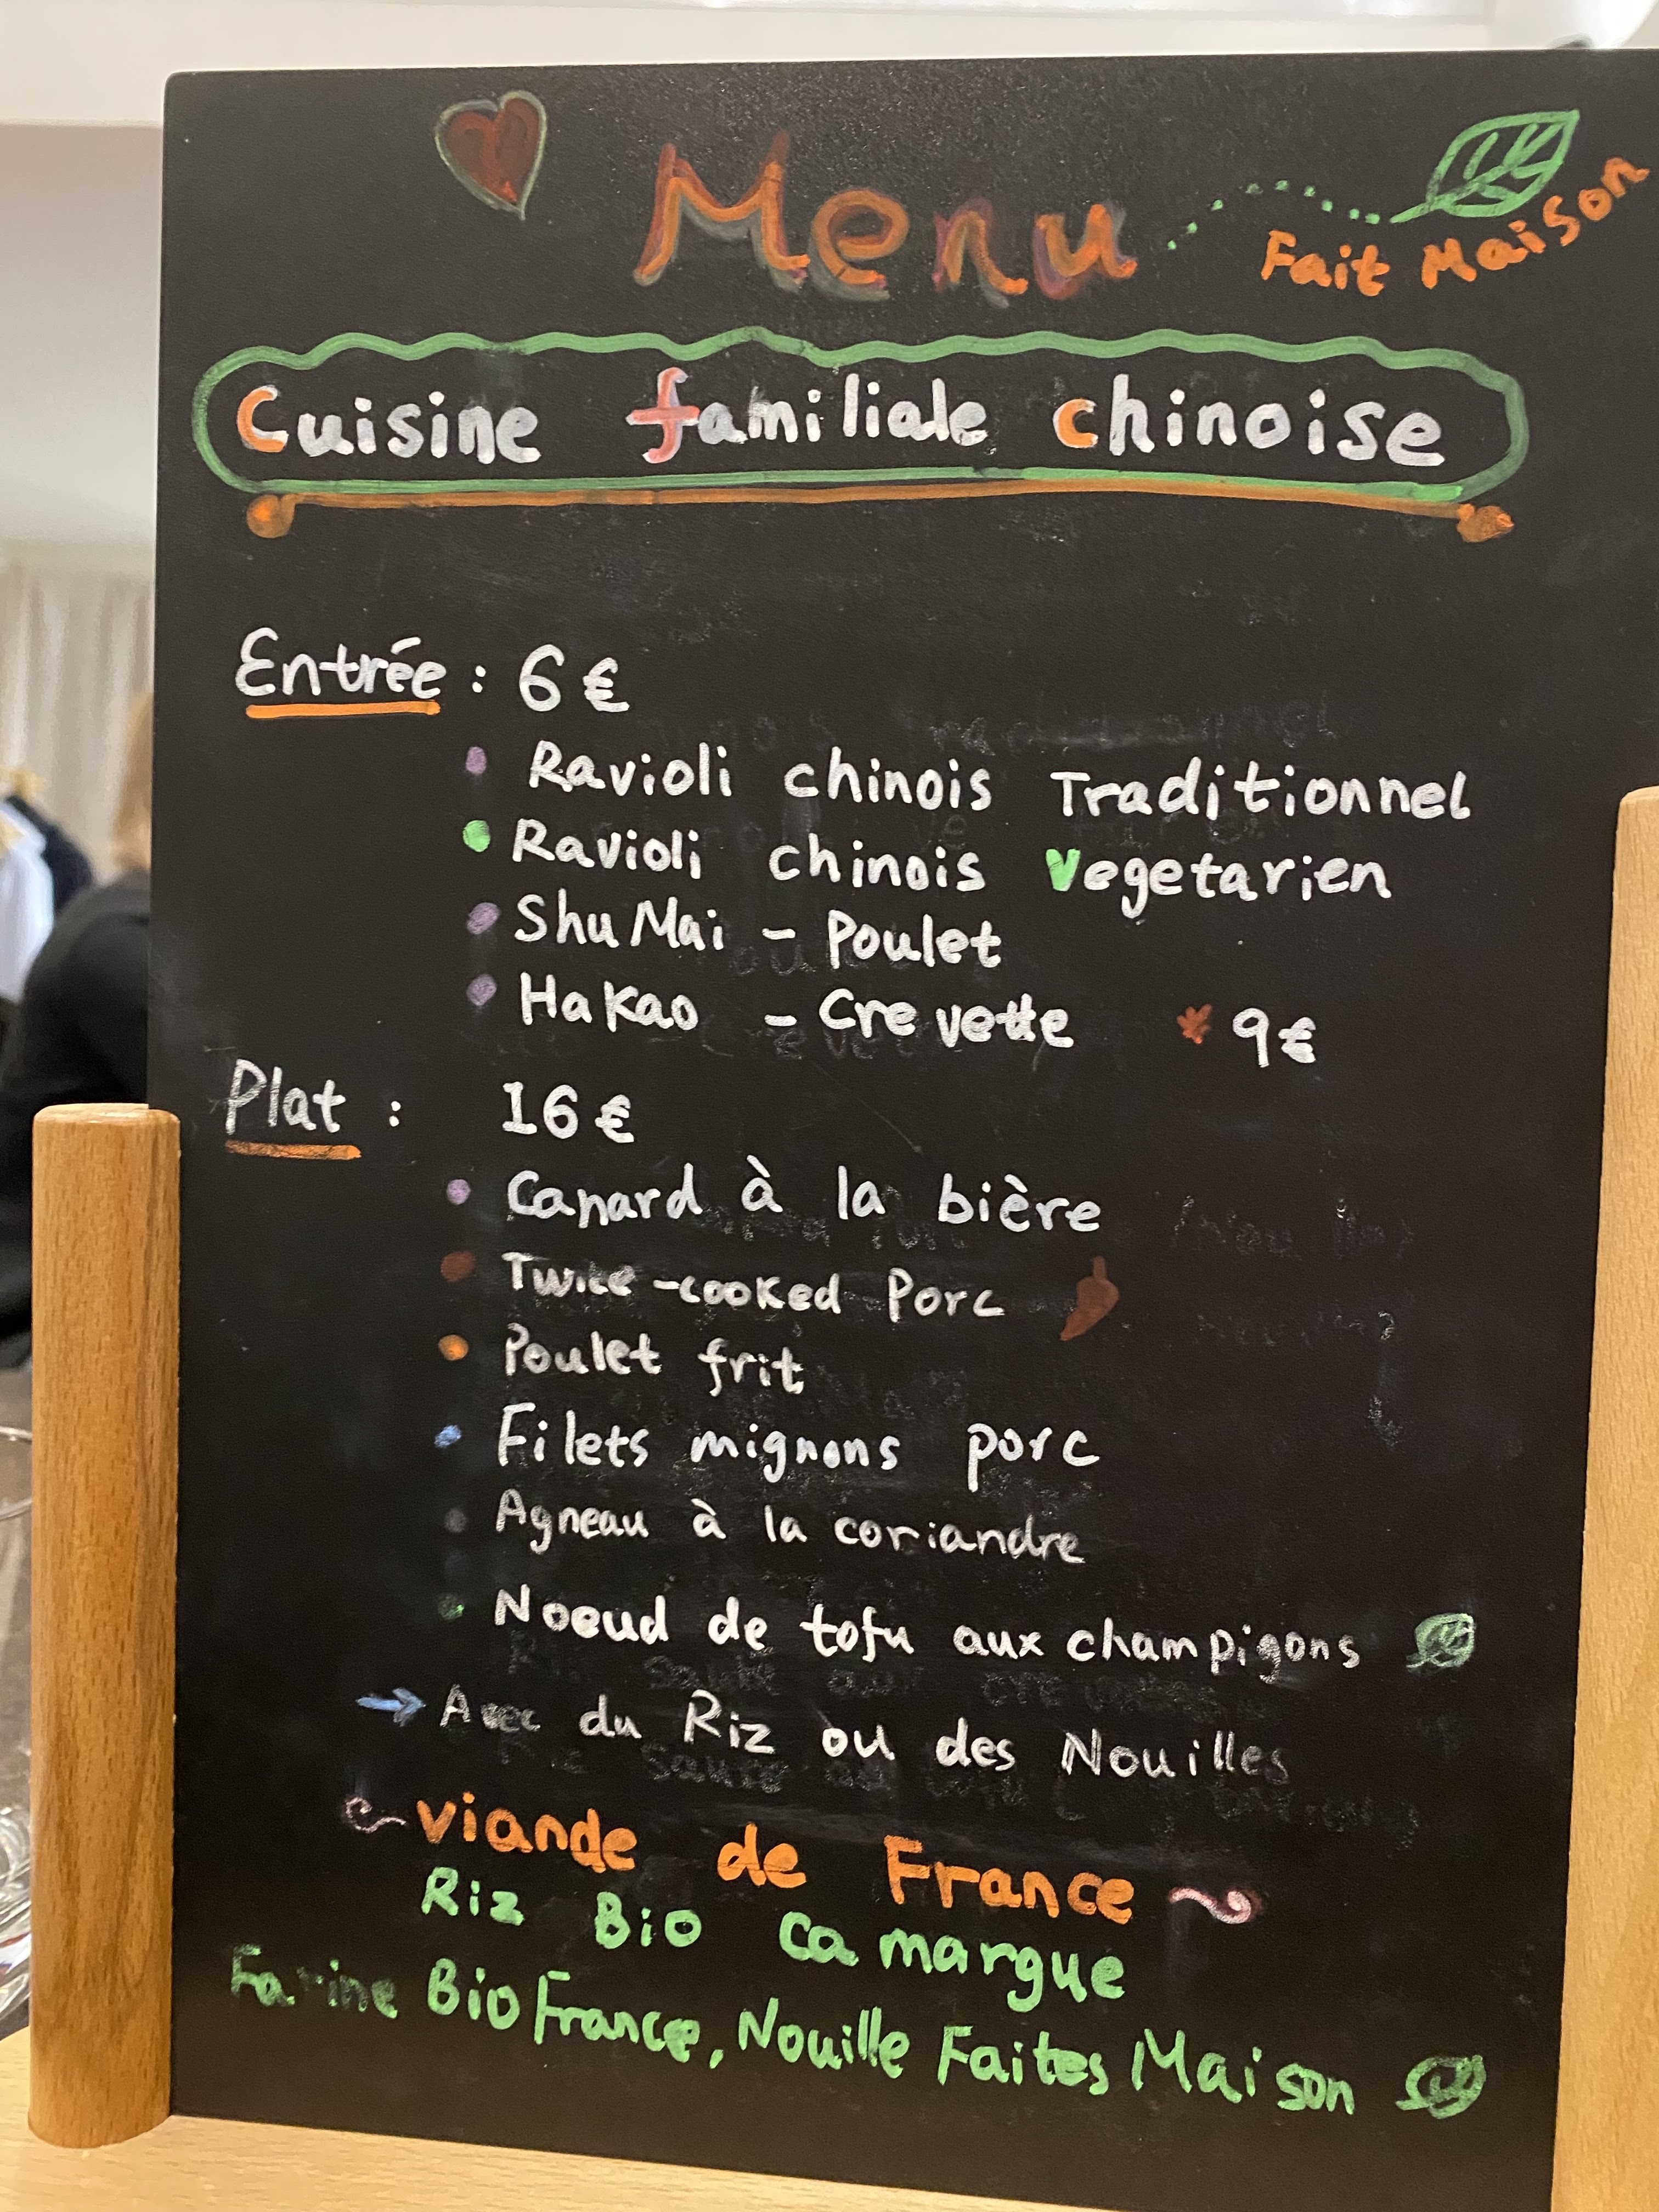 Menu
Fait Maison
Cuisine familiale chinoise
Entrée : 6 €
Ravioli chinois Traditionnel
Ravioli chinois Vegetarien
Shu Mai - Poulet
Ha Kao - Crevette 9 €
Plat : 16 €
Canard à la bière
Twice-cooked Porc
Poulet frit
Filets mignons porc
Agneau à la coriandre
Noeud de tofu aux champigons
Avec du Riz ou des Nouilles
viande de France
Riz Bio Camargue
Farine Bio France, Nouille Faites Maison